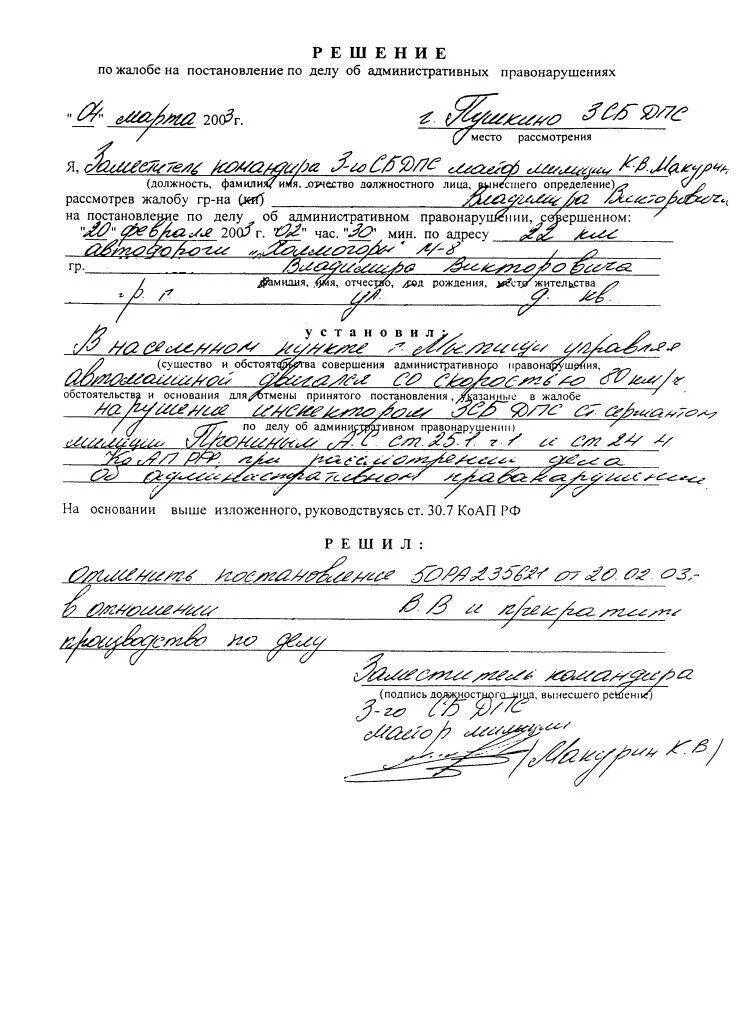 РЕШЕНИЕ
по жалобе на постановление по делу об административных правонарушениях
"04" марта 2003г. г. Пушкино 3 СБ ДПС
место рассмотрения
Я, Заместитель командира 3-го СБ ДПС майор милиции К.В. Макурин
(должность, фамилия, имя, отчество должностного лица, вынесшего определение)
рассмотрев жалобу гр-на (ки) Владимира Викторовича
на постановление по делу об административном правонарушении, совершенном:
"20" февраля 2003 г. "02" час. "30" мин. по адресу 22 км
автодороги "Холмогоры" М-8
гр. Владимира Викторовича
фамилия, имя, отчество, год рождения, место жительства
г.р. г. ул. д. кв.
установил:
В населенном пункте г. Мытищи управляя
(существо и обстоятельства совершения административного правонарушения,
автомашиной двигался со скоростью 80 км/ч
обстоятельства и основания для отмены принятого постановления, указанные в жалобе
нарушение инспектором 3СБ ДПС ст. сержантом
по делу об административном правонарушении)
милиции Прониным А.С. ст. 25.1 ч.1 и ст 24 4
КоАП РФ при рассмотрении дела
об административном правонарушении
На основании выше изложенного, руководствуясь ст. 30.7 КоАП РФ
РЕШИЛ:
отменить постановление 50РА235621 от 20.02.03.-
в отношении В.В и прекратить
производство по делу
Заместитель командира
(подпись должностного лица, вынесшего решение)
3-го СБ ДПС
майор милиции
(Макурин К.В)